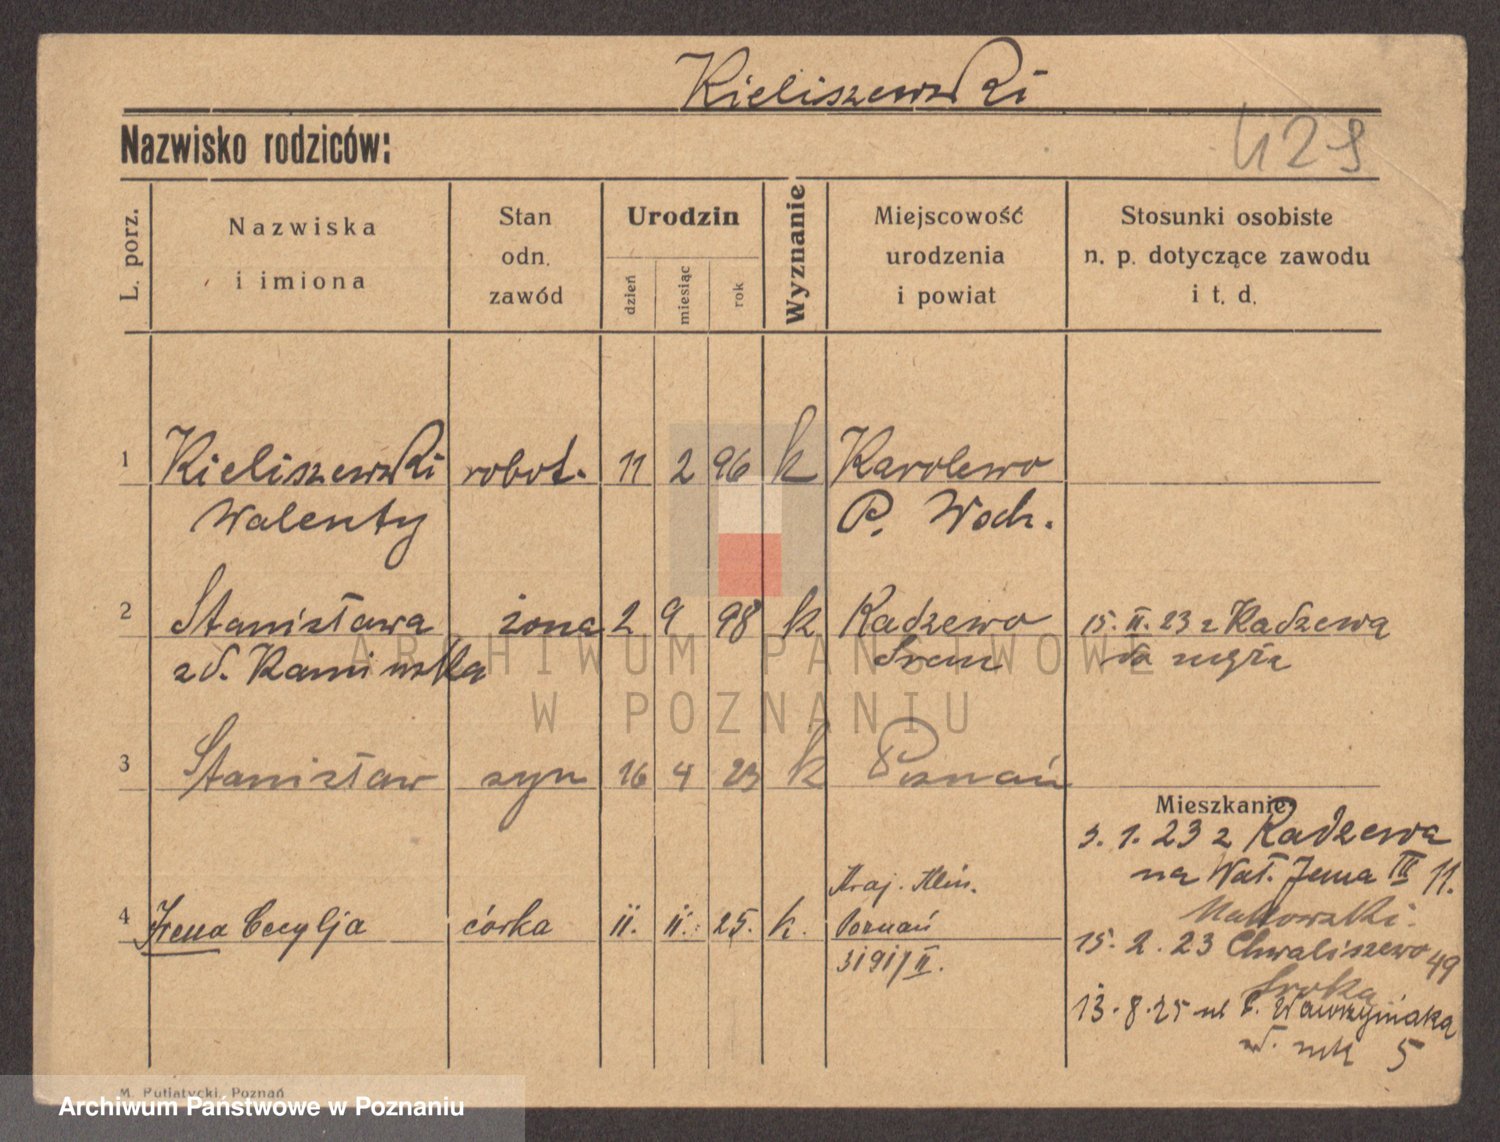 Kieliszewski
Nazwisko rodziców:
429
L. porz.
Nazwiska
i imiona
Stan
odn.
zawód
Urodzin
dzień
miesiąc
rok
Wyznanie
Miejscowość
urodzenia
i powiat
Stosunki osobiste
n. p. dotyczące zawodu
i t. d.
1 Kieliszewski robot. 11 2 96 k Karolewo
Walenty P. Wsch.
2 Stanisława żona 2 9 98 k Radzewo 15.II.23 z Radzewa
zd. Kamińska Śrem do męża
3 Stanisław syn 16 4 23 k Poznań
Mieszkanie:
3.1.23 z Radzewa
na Wał. Jana III 11.
4 Irena Cecylja córka 11. 11. 25. k. Poznań
15.2.23 Chwaliszewo 49
Sroka
13.8.25 ul Wawrzyniaka
5
ARCHIWUM PAŃSTWOWE
W POZNANIU
M. Putiatycki, Poznań
Archiwum Państwowe w Poznaniu